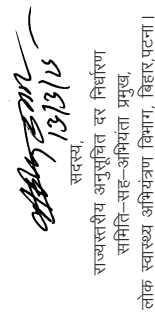 13/3/15
सदस्य,
राज्यस्तरीय अनुसूचित दर निर्धारण
समिति–सह–अभियंता प्रमुख,
लोक स्वास्थ्य अभियंत्रण विभाग, बिहार,पटना।